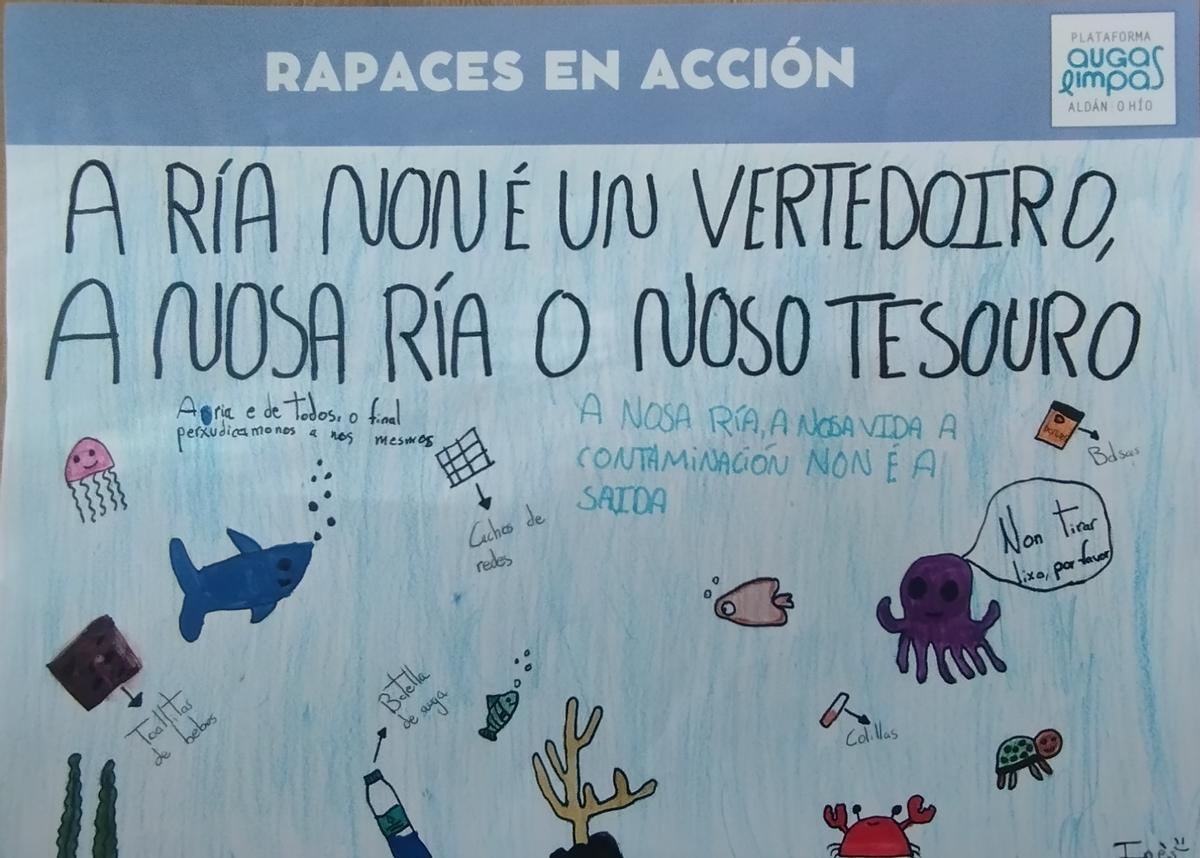 RAPACES EN ACCIÓN
PLATAFORMA
augas
limpas
ALDÁN O HÍO
A RÍA NON É UN VERTEDOIRO,
A NOSA RÍA O NOSO TESOURO
A ria e de Todos, o final
perxudicamonos a nos mesmos
A NOSA RÍA, A NOSA VIDA A
CONTAMINACIÓN NON É A
SAIDA
Bolsas
Cachos de
redes
Non tirar
lixo, por favor
Toallitas
de bebes
Botella
de auga
Colillas